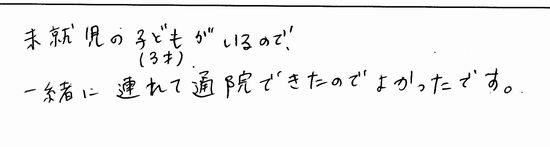 未就児の子どもがいるので、
(3才)
一緒に連れて通院できたのでよかったです。